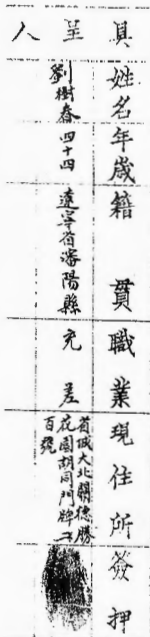 具呈人
姓名 年歲 籍貫 職業 現住所 簽押
劉樹春 四十四 遼寧省瀋陽縣 充差
省城大北關德勝
花園胡同門牌
百號